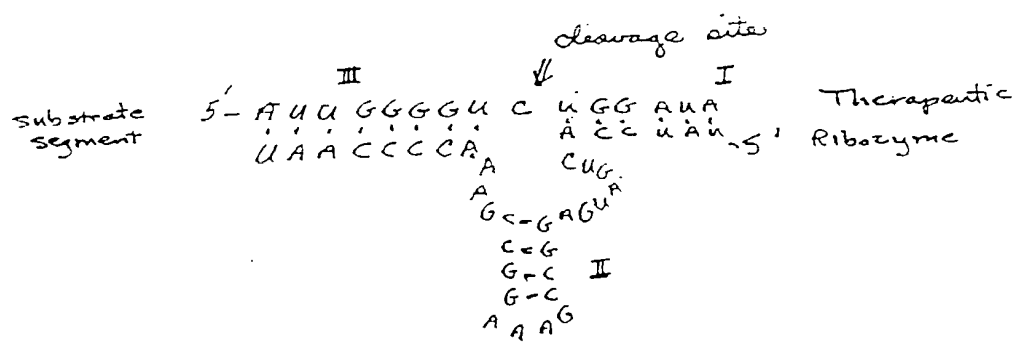 cleavage site
III
I
substrate segment
5'- A U U G G G G U C U G G A U A
Therapeutic Ribozyme
U A A C C C C A
A C C U A U -5'
A
C U G
A
A
G
C - G
A G U
C = G
G - C
II
G - C
A A A G